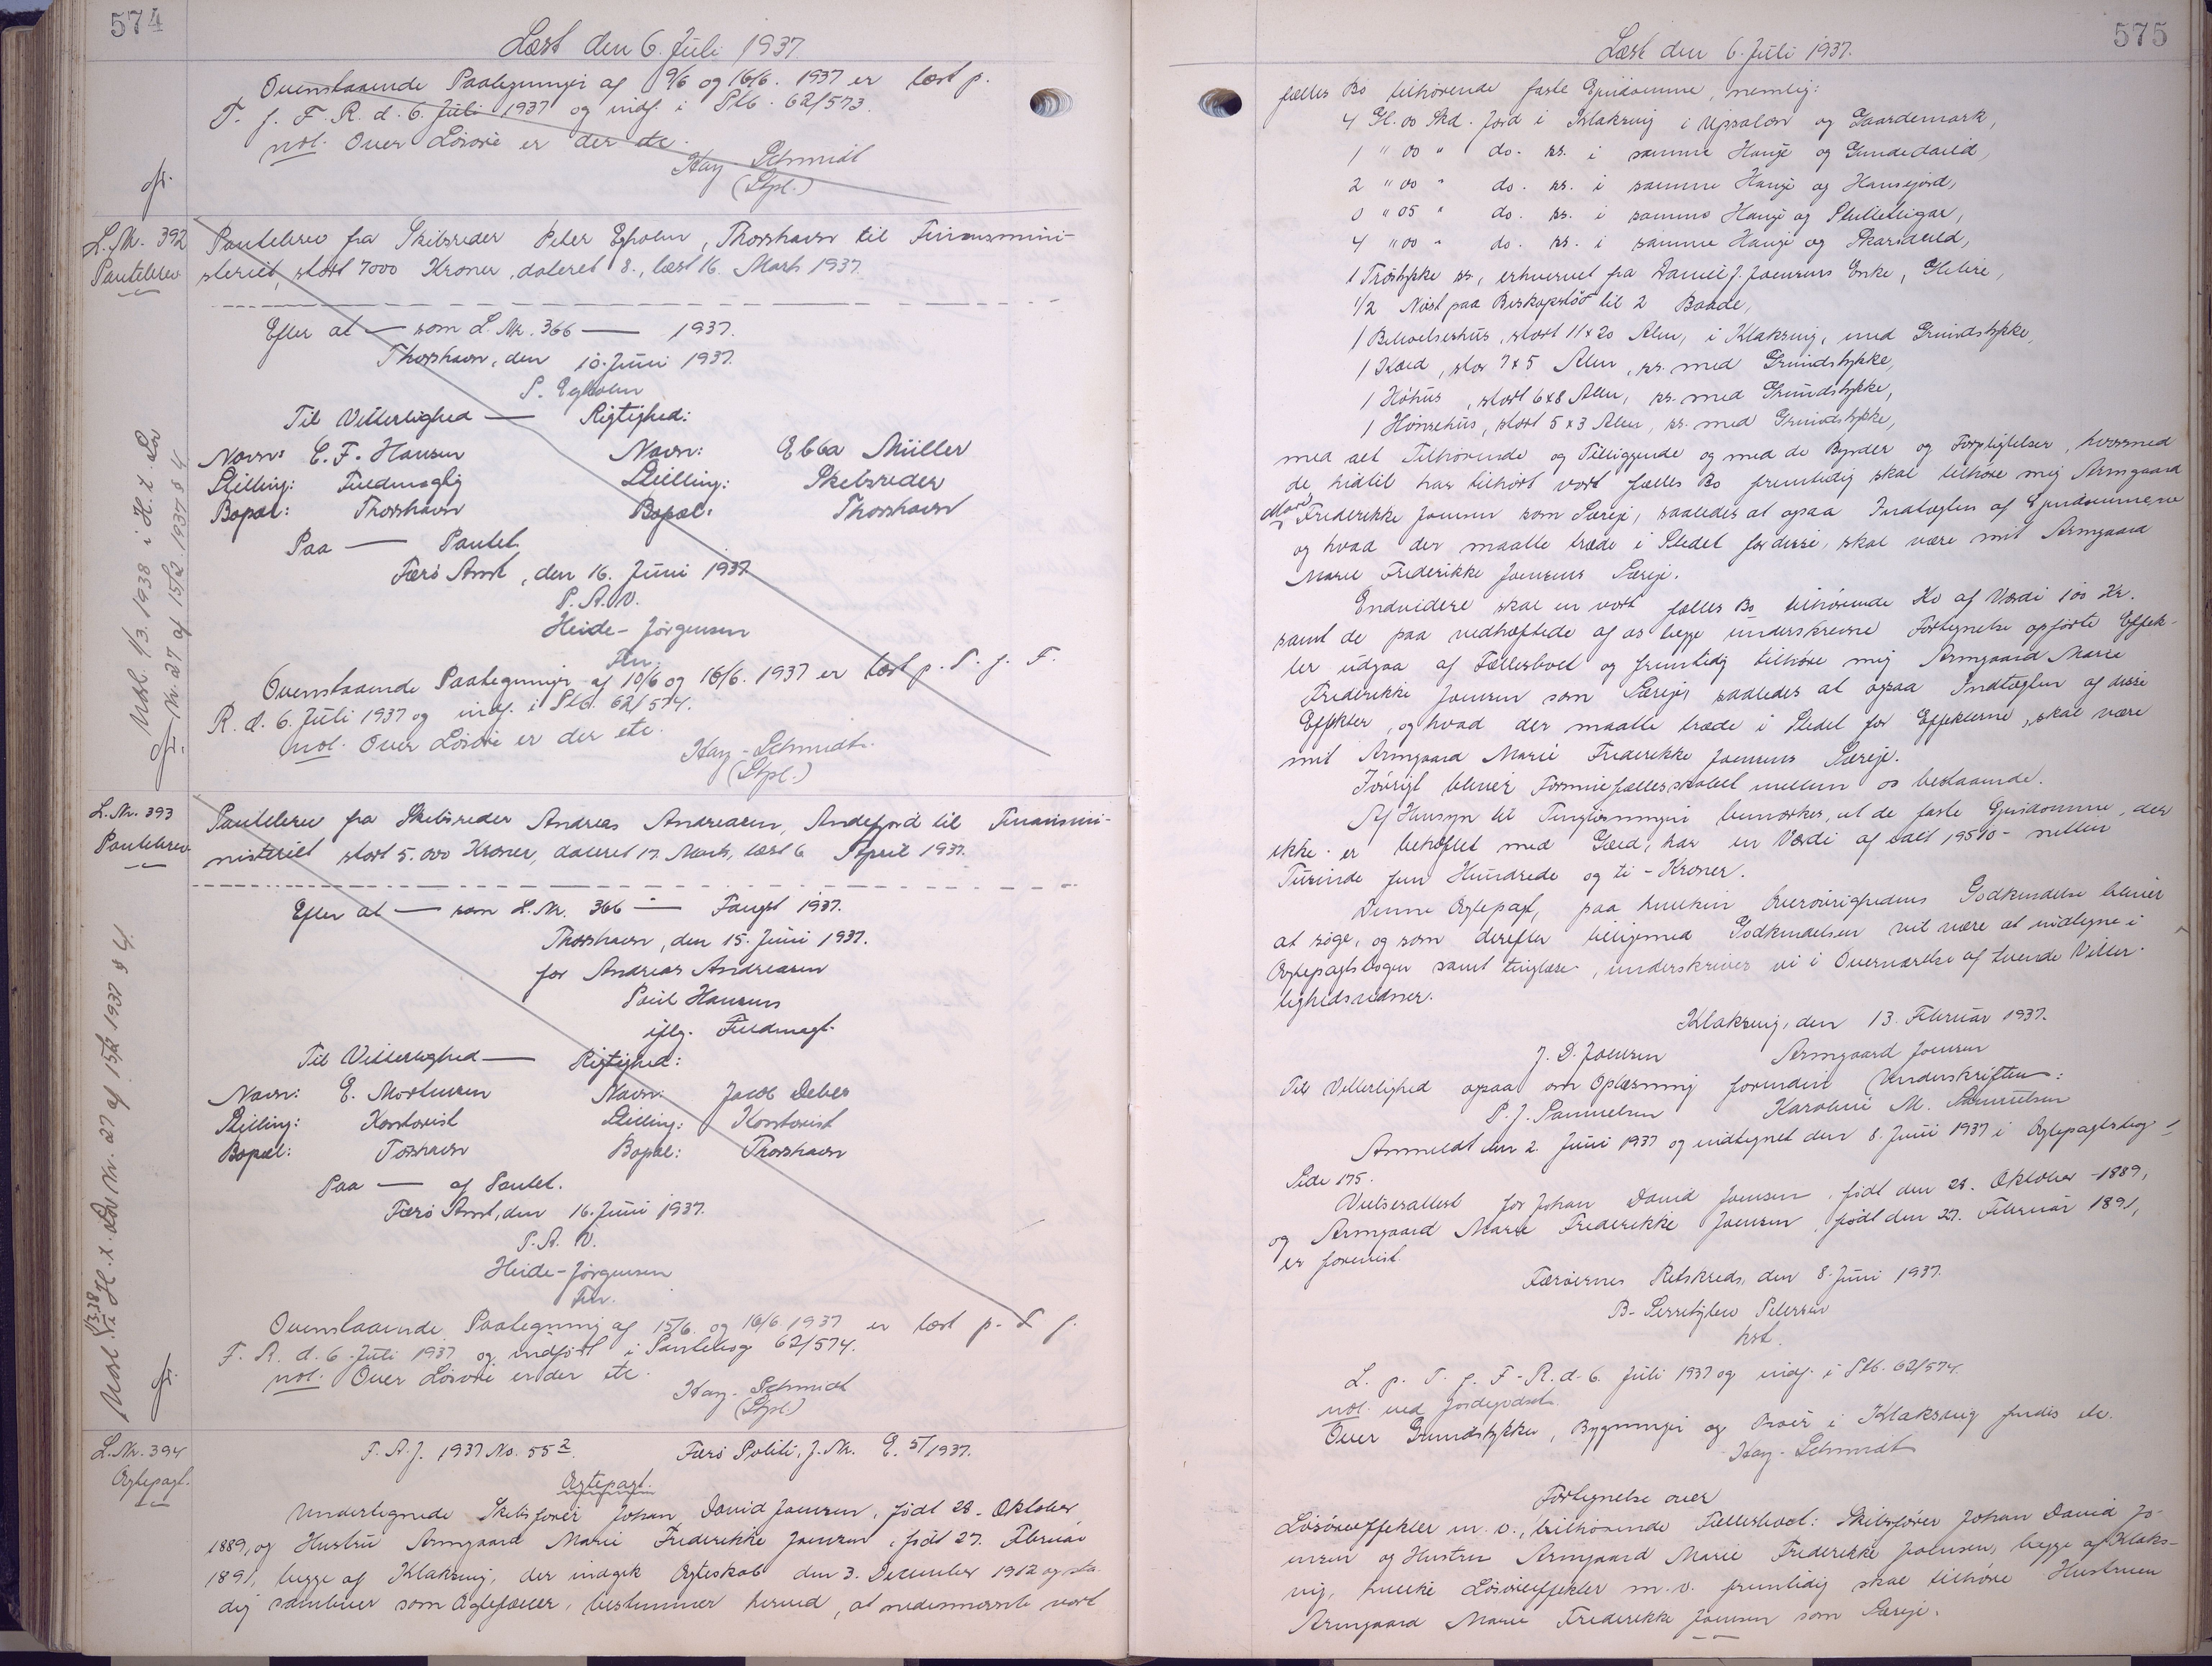 574
Læst den 6. Juli 1937.
Ovenstaaende Paategninger af 9/6 og 16/6. 1937 er læst p.
T. f. F. R. d. 6. Juli 1937 og indf. i Ptb. 62/573.
not. Over Løsøre er der etc.
Kay Schmidt
(Stpl.)
L. Nr. 392
Pantebrev
Pantebrev fra Skibsreder Peter Egholm, Thorshavn til Finansmini-
steriet, stort 7000 Kroner, dateret 8., læst 16. Marts 1937.
Efter at — som L. Nr. 366 — 1937.
Thorshavn, den 10. Juni 1937.
P. Egholm
Til Vitterlighed — Rigtighed:
Navn: C. F. Hansen Navn: Ebba Müller
Stilling: Fuldmægtig Stilling: Skibsreder
Bopæl: Thorshavn Bopæl: Thorshavn
Paa — Pantet.
Færø Amt, den 16. Juni 1937
P. A. V.
Heide-Jörgensen
Fm.
Ovenstaaende Paategninger af 10/6 og 16/6. 1937 er læst p. T. f. F.
R. d. 6. Juli 1937 og indf. i Ptb. 62/574.
not. Over Løsøre er der etc.
Kay-Schmidt.
(Stpl.)
Udsl. 1/3. 1938 i H. t. Lov
Nr. 27 af 15/2 1937 § 4
L. Nr. 393
Pantebrev
Pantebrev fra Skibsreder Andreas Andreasen, Andefjord til Finansmi-
nisteriet stort 5.000 Kroner, dateret 17. Marts, læst 6 April 1937.
Efter at — som L. Nr. 366 — 1937.
Thorshavn, den 15. Juni 1937.
for Andreas Andreasen
Poul Hansen
iflg. Fuldmagt.
Til Vitterlighed — Rigtighed:
Navn: E. Mortensen Navn: Jacob Debes
Stilling: Kontorist Stilling: Kontorist
Bopæl: Tórshavn Bopæl: Thorshavn
Paa — af Pantet.
Færø Amt, den 16. Juni 1937.
P. A. V.
Heide-Jörgensen
Fm.
Ovenstaaende Paategning af 15/6. og 16/6 1937 er læst p. T f.
F. R. d. 6. Juli 1937 og indført i Pantebog 62/574.
not. Over Løsøre er der etc.
Kay-Schmidt
(Stpl.)
Udsl. 1/3.38 i H. t. Lov Nr. 27 af 15/2 1937 § 4.
L. Nr. 394
Ægtepagt.
F. A. J. 1937 No. 55² Færø Politi, J. Nr. E. 5/1937.
Ægtepagt.
Undertegnede Skibsfører Johan David Joensen, født 28. Oktober
1889, og Hustru Armgaard Marie Frederikke Joensen, født 27. Februar
1891, begge af Klaksvig, der indgik Ægteskab den 3. December 1912 og sta-
dig samlever som Ægtefæller, bestemmer herved, at nedennævnte vort
575
Læst den 6. Juli 1937.
fælles Bo tilhørende faste Ejendomme, nemlig:
4 Gl. 00 Skd. Jord i Klaksvig i Upsalon og Gaardemark,
1 " 00 " do. ss. i samme Hauge og Gundedaild,
2 " 00 " do. ss. i samme Hauge og Hansejord,
0 " 05 " do. ss. i samme Hauge og
4 " 00 " do. ss. i samme Hauge og
1 Tröstykke ss., erhvervet fra Daniel J. Joensens Enke, Glibre,
1/2 Nøst paa Biskopstöd til 2 Baade,
1 Beboelseshus, stort 11x20 Alen, i Klaksvig, med Grundstykke,
1 Kæld, stor 7x5 Alen, ss. med Grundstykke,
1 Høhus, stort 6x8 Alen, ss. med Grundstykke,
1 Hønsehus, stort 5x3 Alen, ss. med Grundstykke,
med alt Tilhørende og Tilliggende og med de Byrder og Forpligtelser, hvormed
de hidtil har tilhørt vort fælles Bo fremtidig skal tilhøre mig Armgaard
Marie Frederikke Joensen som Særeje, saaledes at ogsaa Indtægten af Ejendommene
og hvad der maatte træde i Stedet for disse, skal være mit Armgaard
Marie Frederikke Joensens Særeje.
Endvidere skal en vort fælles Bo tilhørende Ko af Værdi 100 Kr.
samt de paa vedhæftede af os begge underskrevne Fortegnelse opførte Effek-
ter udgaa af Fællesboet og fremtidig tilhøre mig Armgaard Marie
Frederikke Joensen som Særeje, saaledes at ogsaa Indtægten af disse
Effekter, og hvad der maatte træde i Stedet for Effekterne, skal være
mit Armgaard Marie Frederikke Joensens Særeje.
Iøvrigt bliver Formuefællesskabet mellem os bestaaende.
Af Hensyn til Tinglysningen bemærkes, at de faste Ejendomme, der
ikke er behæftet med Gæld, har en Værdi af ialt 19510 - nitten
Tusinde fem Hundrede og ti - Kroner.
Denne Ægtepagt, paa hvilken Øvrighedens Godkendelse bliver
at søge, og som derefter tilligemed Godkendelsen vil være at indtegne i
Ægtepagtsbogen samt tinglæse, underskriver vi i Overværelse af tvende Vitter-
lighedsvidner.
Klaksvig, den 13. Februar 1937.
J. D. Joensen Armgaard Joensen
Til Vitterlighed ogsaa om Oplæsning forinden Underskriften:
P. J. Samuelsen Karoline M. Samuelsen
Anmeldt den 2. Juni 1937 og indtegnet den 8. Juni 1937 i Ægtepagtsbog 1
Side 175.
Vielsesattest for Johan David Joensen, født den 28. Oktober 1889,
og Armgaard Marie Frederikke Joensen, født den 27. Februar 1891,
er forevist.
Færøernes Retskreds, den 8. Juni 1937.
B- Petersen
kst.
L. p. T. f. F. R. d. 6. Juli 1937 og indf. i Ptb. 62/574.
not. ved Jordegodset.
Over Grundstykker, Bygninger og i Klaksvig findes etc.
Kay-Schmidt
Fortegnelse over
Løsøreeffekter m. v., tilhørende Fællesboet: Skibsfører Johan David Jo-
ensen og Hustru Armgaard Marie Frederikke Joensen, begge af Klaks-
vig, hvilke Løsøreeffekter m. v. fremtidig skal tilhøre Hustruen
Armgaard Marie Frederikke Joensen som Særeje.